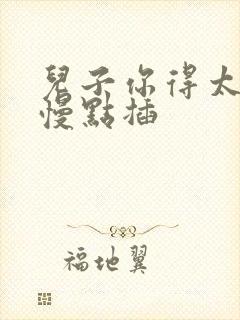 兒子你得太
慢點插
福地翼